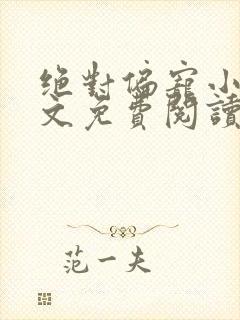 絕對偏寵小
文免費閱讀
范一夫